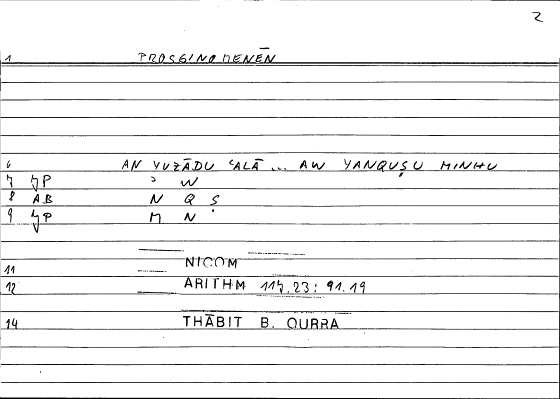 2
1 PROSGINOMENĒN
6 AN YUZĀDU ʿALĀ ... AW YANQUṢU MINHU
7 JP ʾ W
8 AB N Q Ṣ
9 JP M N
11 NICOM
12 ARITHM 117.23: 91.19
14 THĀBIT B. QURRA